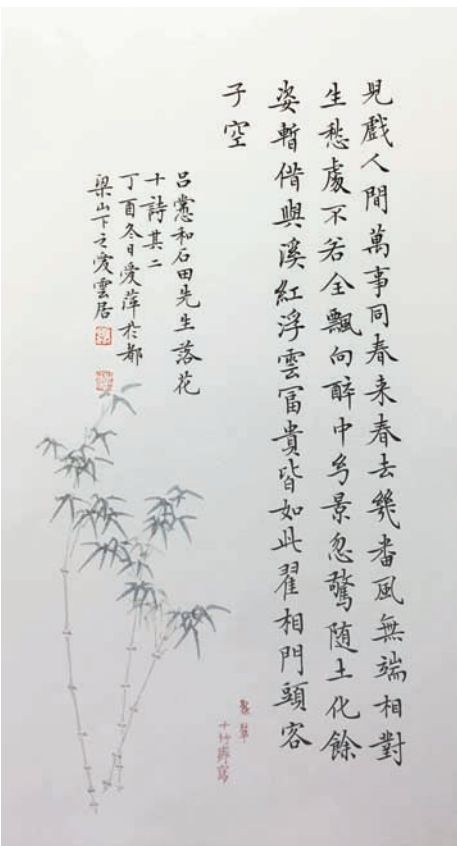 児戲人間萬事同春来春去幾番風無端相對
生愁處不若全飄向醉中多景忽驚随土化餘
姿暫借與溪紅浮雲冨貴皆如此翟相門頭容
子空
吕㦂和石田先生落花
十詩其二
丁酉冬日爱萍於都
梁山下之爱雲居
十竹齋寫